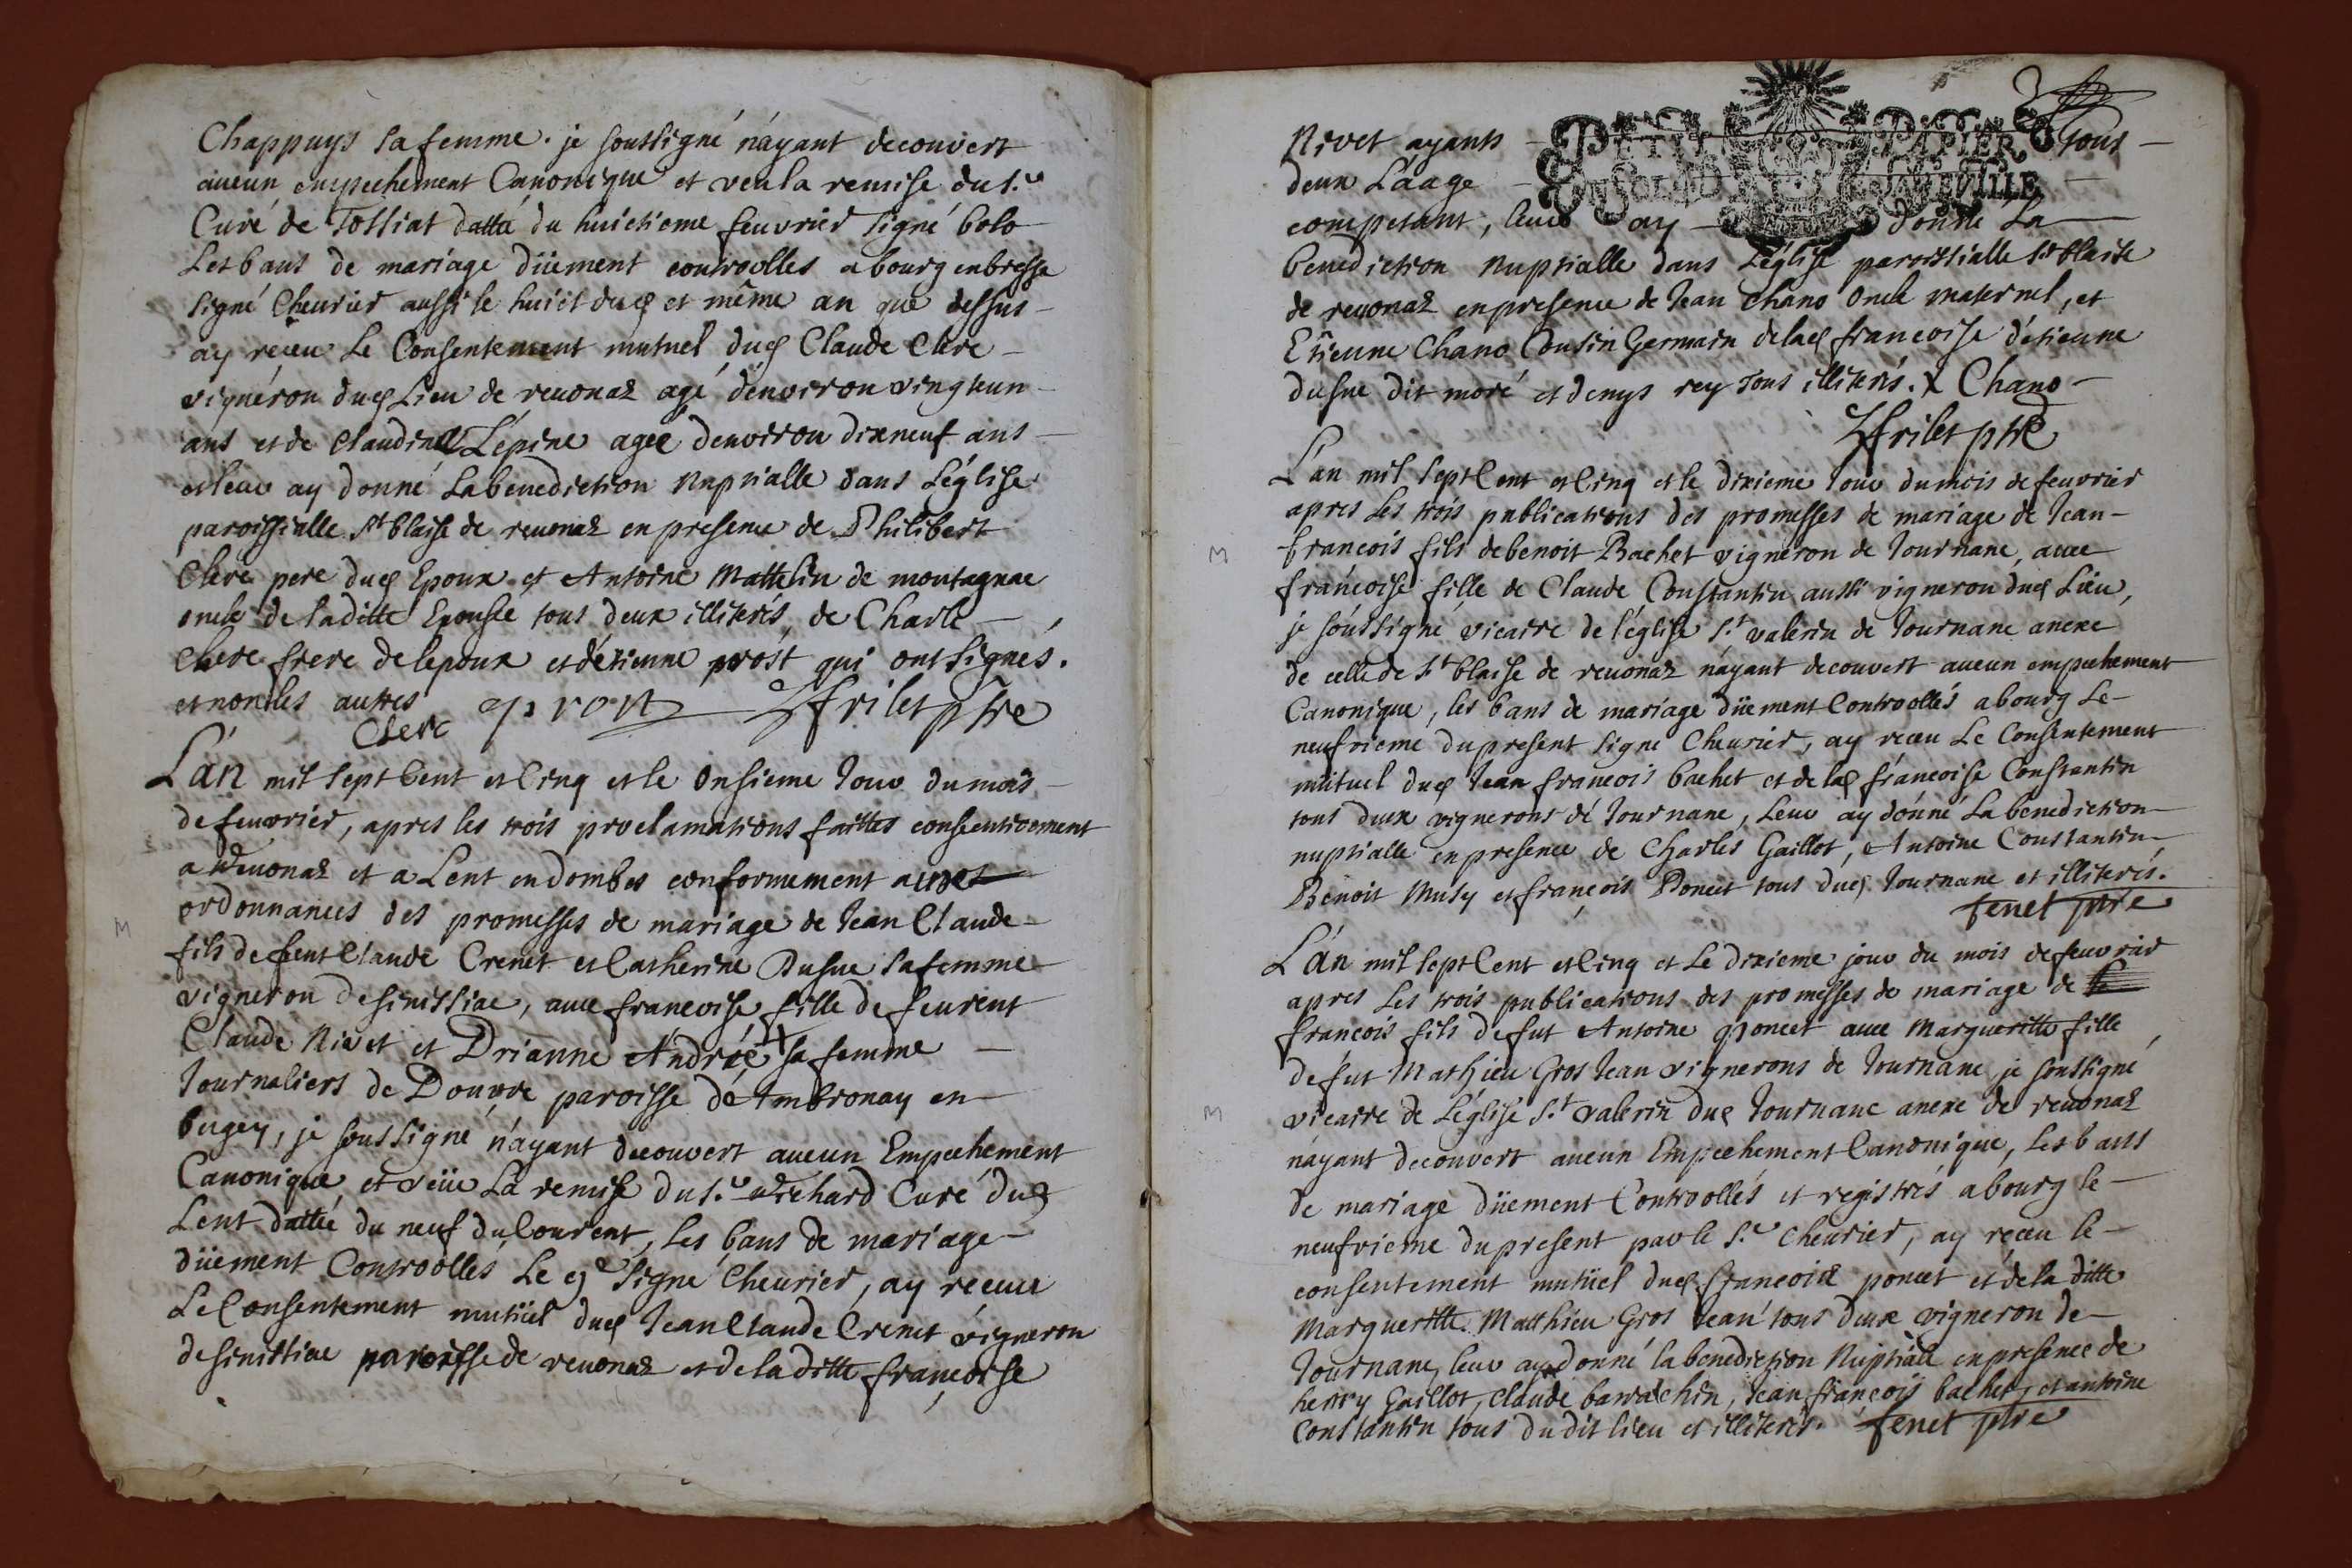 Chappuys sa femme. je soussigné n'ayant decouvert
aucun empechement Canonique et veu la remise du s.r
Curé de Tossiat datté du huictieme feuvrier signé bolo
Les bans de mariage düement controolles a bourg en bresse
signé Cheurier aussi le huict dud et même an que dessus
ay reçeu Le Consentement mutuel dud Claude Clere
vignéron dud Lieu de reuonaz agé d'environ vingteun
ans et de Claudine L'épine agée d'environ dixneuf ans
et leur ay donné La benediction Nuptialle dans L'église
paroissialle St blaise de reuonaz en presence de Philibert
Clere pere dud Epoux et Antoine Mattelin de montagnac
oncle de laditte Epouse tous deux illiterés, de Charle
Clere frere de lepoux et d'étienne prost qui ont signés.
et non les autres
Clerc eprost frilet ptre
L'an mil sept Cent et Cinq et le Onsieme Jour du mois
de feuvrier, apres les trois proclamations faittes consecutivement
a Reuonaz et a Lent en dombes conformement aux
ordonnances des promesses de mariage de Jean Claude
fils de feut Claude Crenet et Catherine Dusue sa femme
vigneron de senissiac, avec francoise fille de feurent
Claude Nivet et Drianne André sa femme
Journaliers de Douvre paroisse de Ambronay en
bugey, je soussigné n'ayant decouvert aucun Empechement
Canonique et veüe La remise du s.r Richard Curé dud
Lent dattée du neuf du Courent, Les bans de mariage
düement Controollés Le 9e signé Cheurier, ay receu
Le Consentement mutüel dud Jean Claude Crenet vigneron
de senissiac paroisse de reuonaz et de la ditte françoise
Nivet ayants PETIT PAPIER tous
deux L'aage
competant, leur ay donné La
benediction Nuptialle dans L'église paroissialle St blaise
de reuonaz en presence de Jean Chano oncle maternel, et
Etienne Chano Cousin Germain de lad francoise d'étienne
dusue dit moré et denys rey Tous illiterés. X Chano
frilet ptre
L'an mil sept Cent et Cinq et le dixieme Jour du mois de feuvrier
apres Les trois publications des promesses de mariage de Jean
francois fils de benoit Bachet vigneron de Journanc, avec
françoise fille de Claude Constantin aussi vigneron dud Lieu,
je soussigné vicaire de l'église S.t valerin de Journanc anexe
de celle de St blaise de reuonaz n'ayant decouvert aucun empechement
Canonique, les bans de mariage düement Controollés a bourg Le
neufvieme du present signé Cheurier, ay receu Le Consentement
mütuel dud Jean francois bachet et de lad francoise Constantin
tous deux vignerons de Journanc, Leur ay donné La benediction
nuptialle en presence de Charles Gaillot, Antoine Constantin
Benoit Musy et françois Poncet tous dud Journanc et illiterés.
fenet ptre
L'an mil sept Cent et Cinq et Le dixieme jour du mois de feuvrier
apres Les trois publications des promesses de mariage de
francois fils de fut Antoine poncet avec Margueritte fille
de fut Mathieu Gros Jean vignerons de Journanc, je soussigné
vicaire de L'église S.t valerin dud Journanc anexe de reuonaz
n'ayant decouvert aucun Empechement Canonique, Les bans
de mariage düement Controollés et registrés a bourg le
neufvieme du present par le S.r Cheurier, ay reçeu le
consentement mutüel dud francois poncet et de la ditte
Margueritte Matthieu Gros Jean tous deux vigneron de
Journanc, leur ay donné la benediction Nuptiale en presence de
henry Gaillot, Claude barrachin, Jean françois bachet, et antoine
Constantin tous du dit lieu et illiterés. fenet ptre